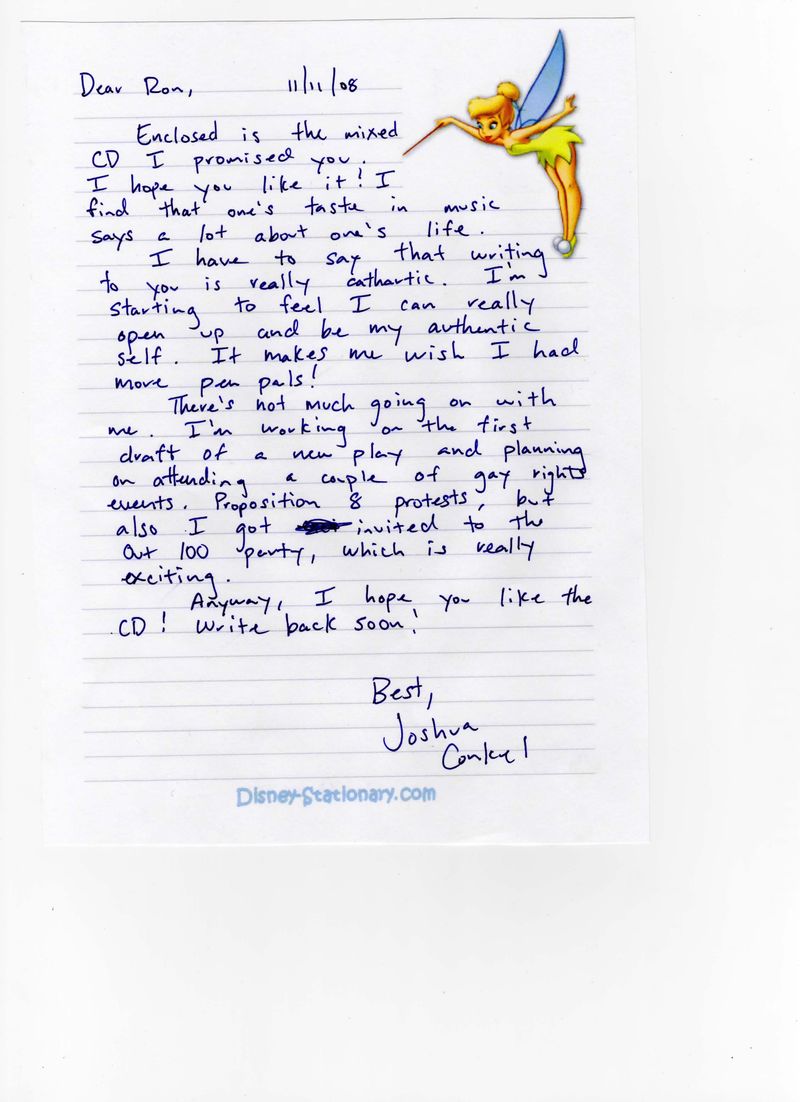 Dear Ron, 11/11/08
Enclosed is the mixed
CD I promised you.
I hope you like it! I
find that one's taste in music
says a lot about one's life.
I have to say that writing
to you is really cathartic. I'm
starting to feel I can really
open up and be my authentic
self. It makes me wish I had
more pen pals!
There's not much going on with
me. I'm working on the first
draft of a new play and planning
on attending a couple of gay rights
events. Proposition 8 protests, but
also I got invited to the
Out 100 party, which is really
exciting.
Anyway, I hope you like the
CD! Write back soon!
Best,
Joshua
Conkel
Disney-Stationary.com